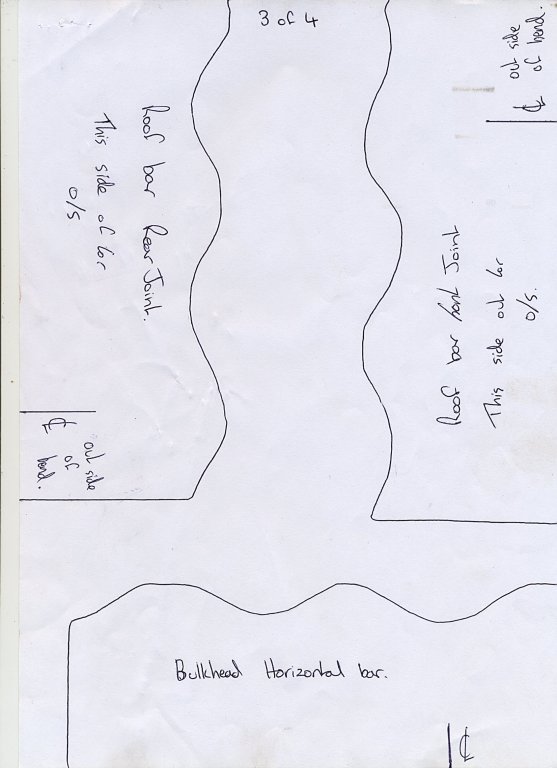 3 of 4
Roof bar Rear Joint.
This side of for
o/s
℄
out side
of
bend.
out side
of bend.
℄
Roof bar front Joint
This side out for
o/s.
Bulkhead Horizontal bar.
℄